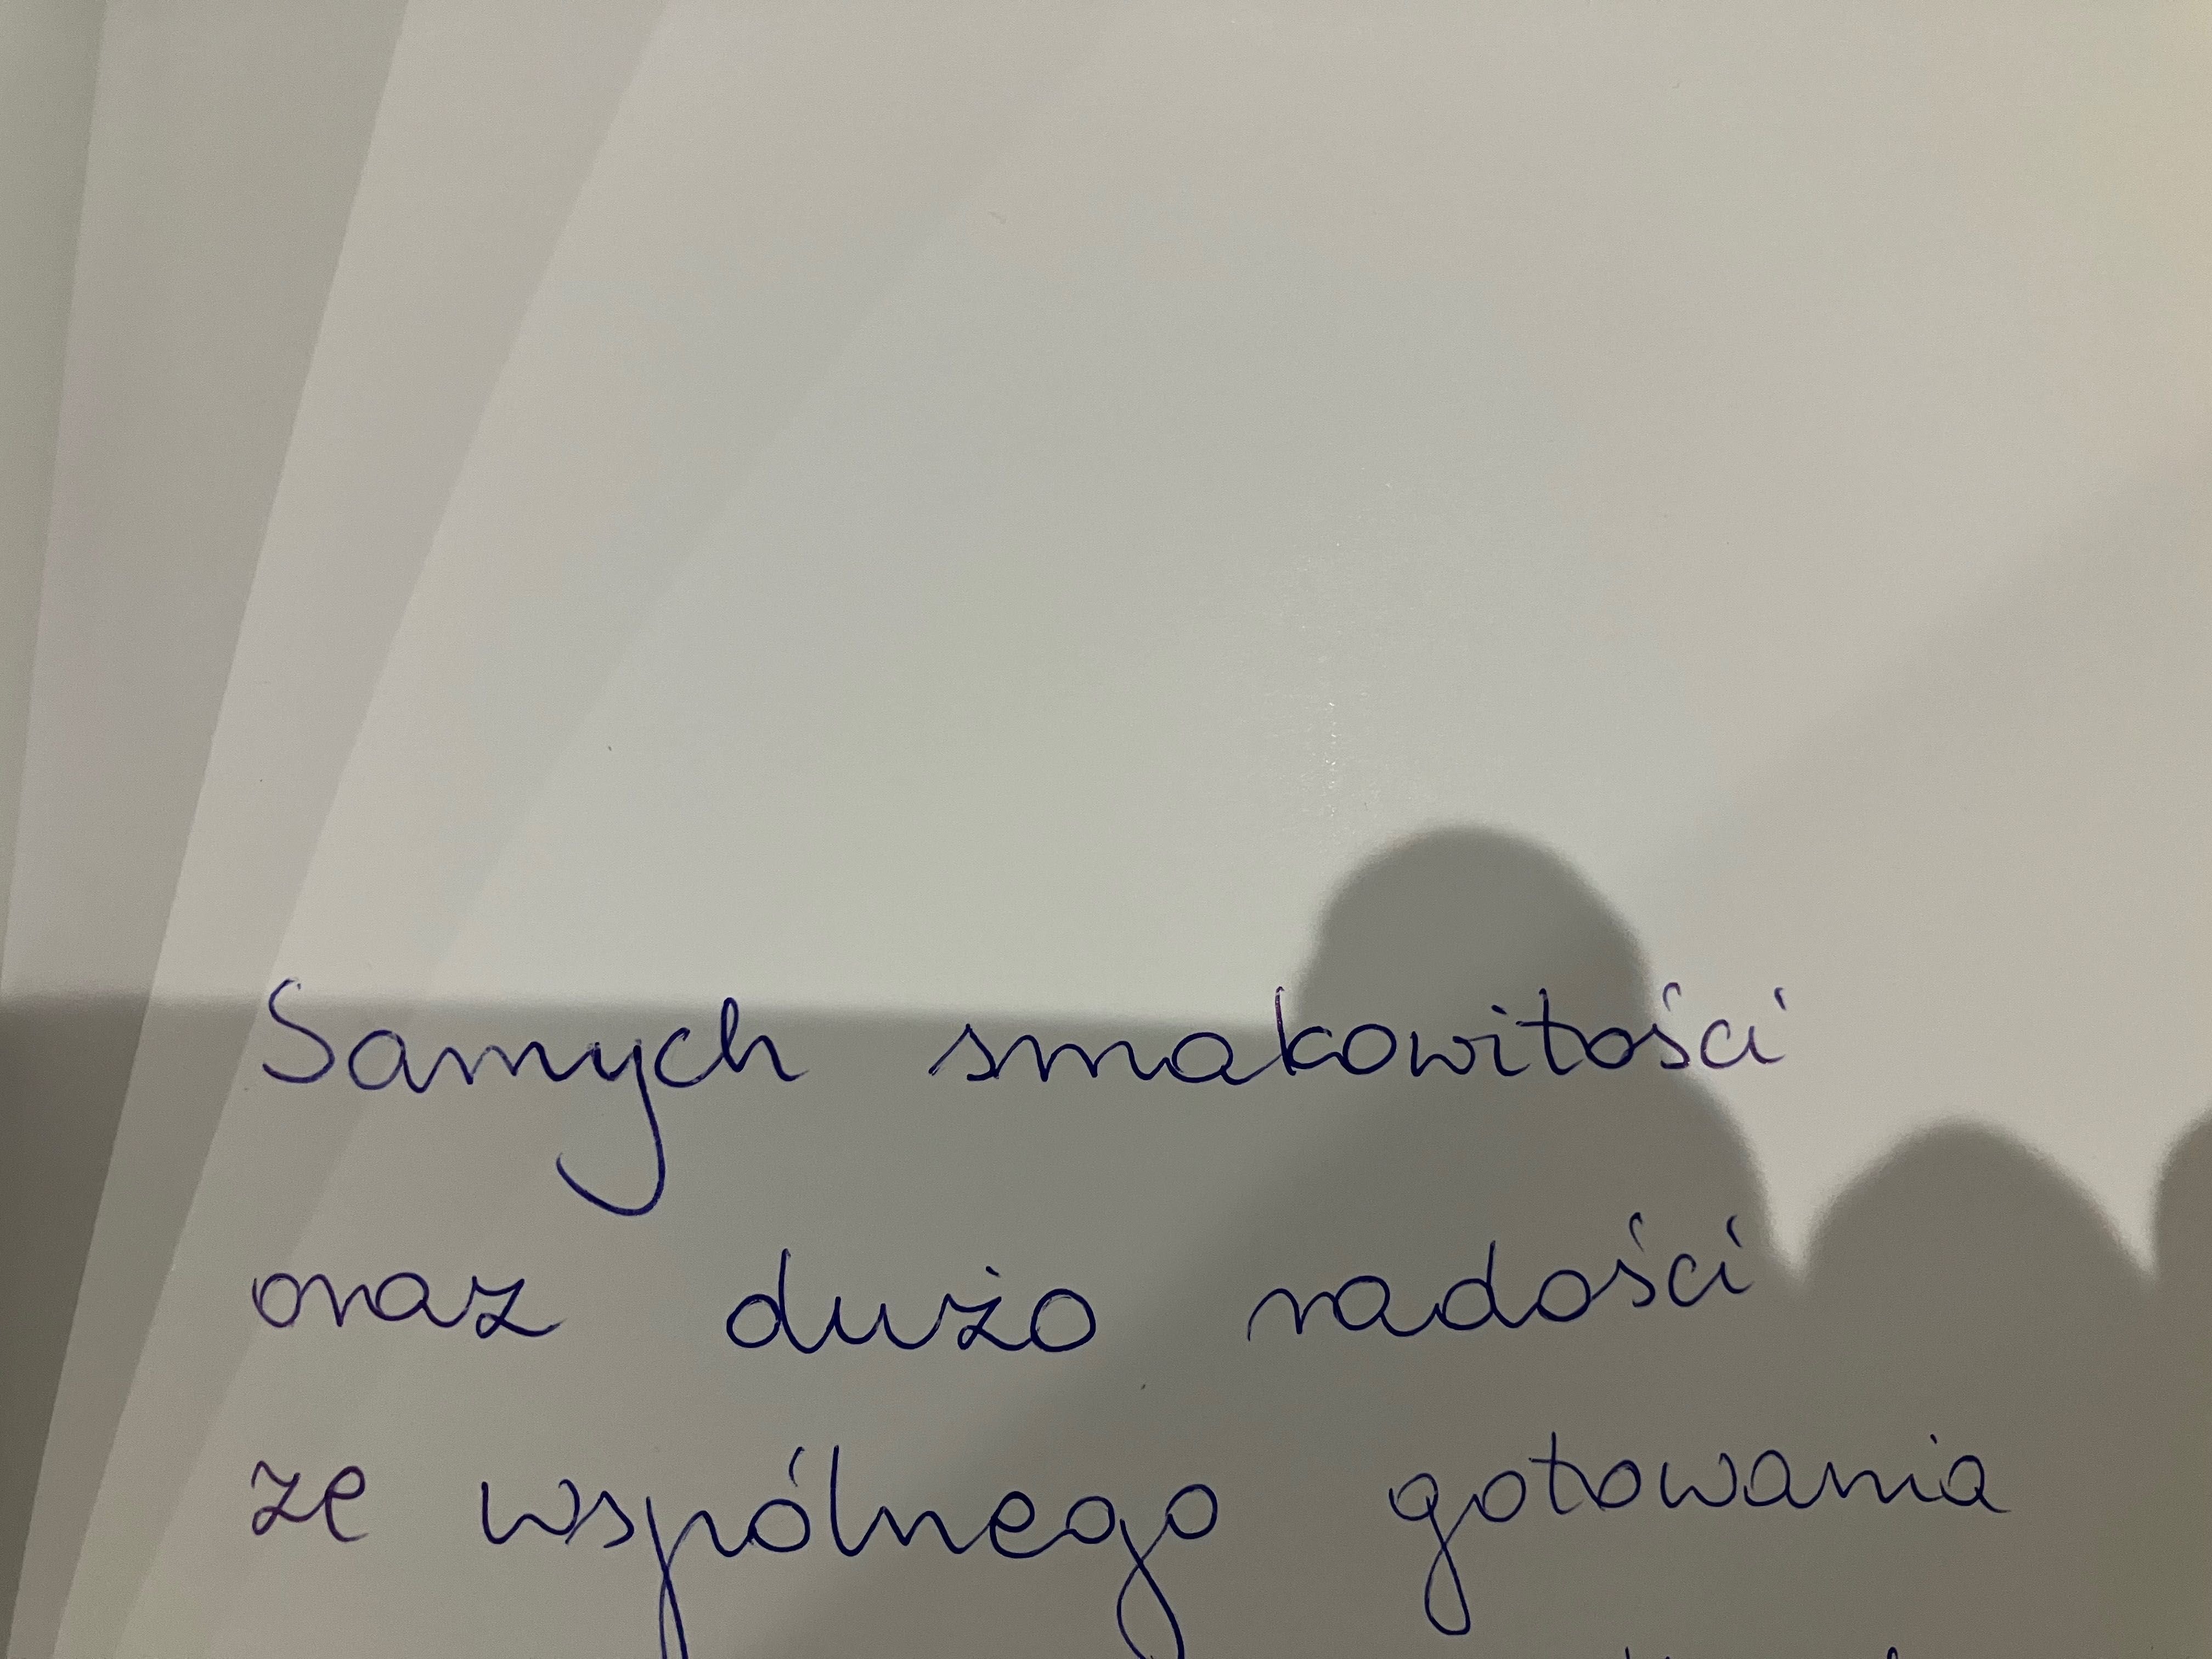 Samych smakowitości
oraz dużo radości
ze wspólnego gotowania